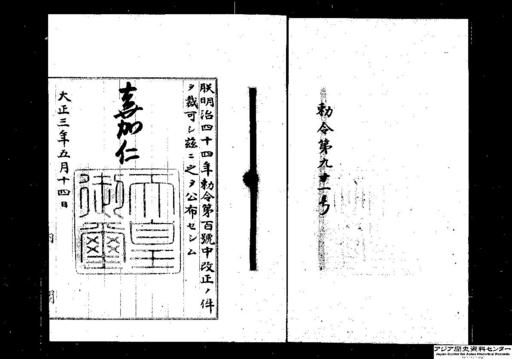 勅令第九十一号
朕明治四十四年勅令第百號中改正ノ件
ヲ裁可シ茲ニ之ヲ公布セシム
嘉仁
天皇
御璽
大正三年五月十四日
アジア歴史資料センター
Japan Center for Asian Historical Records